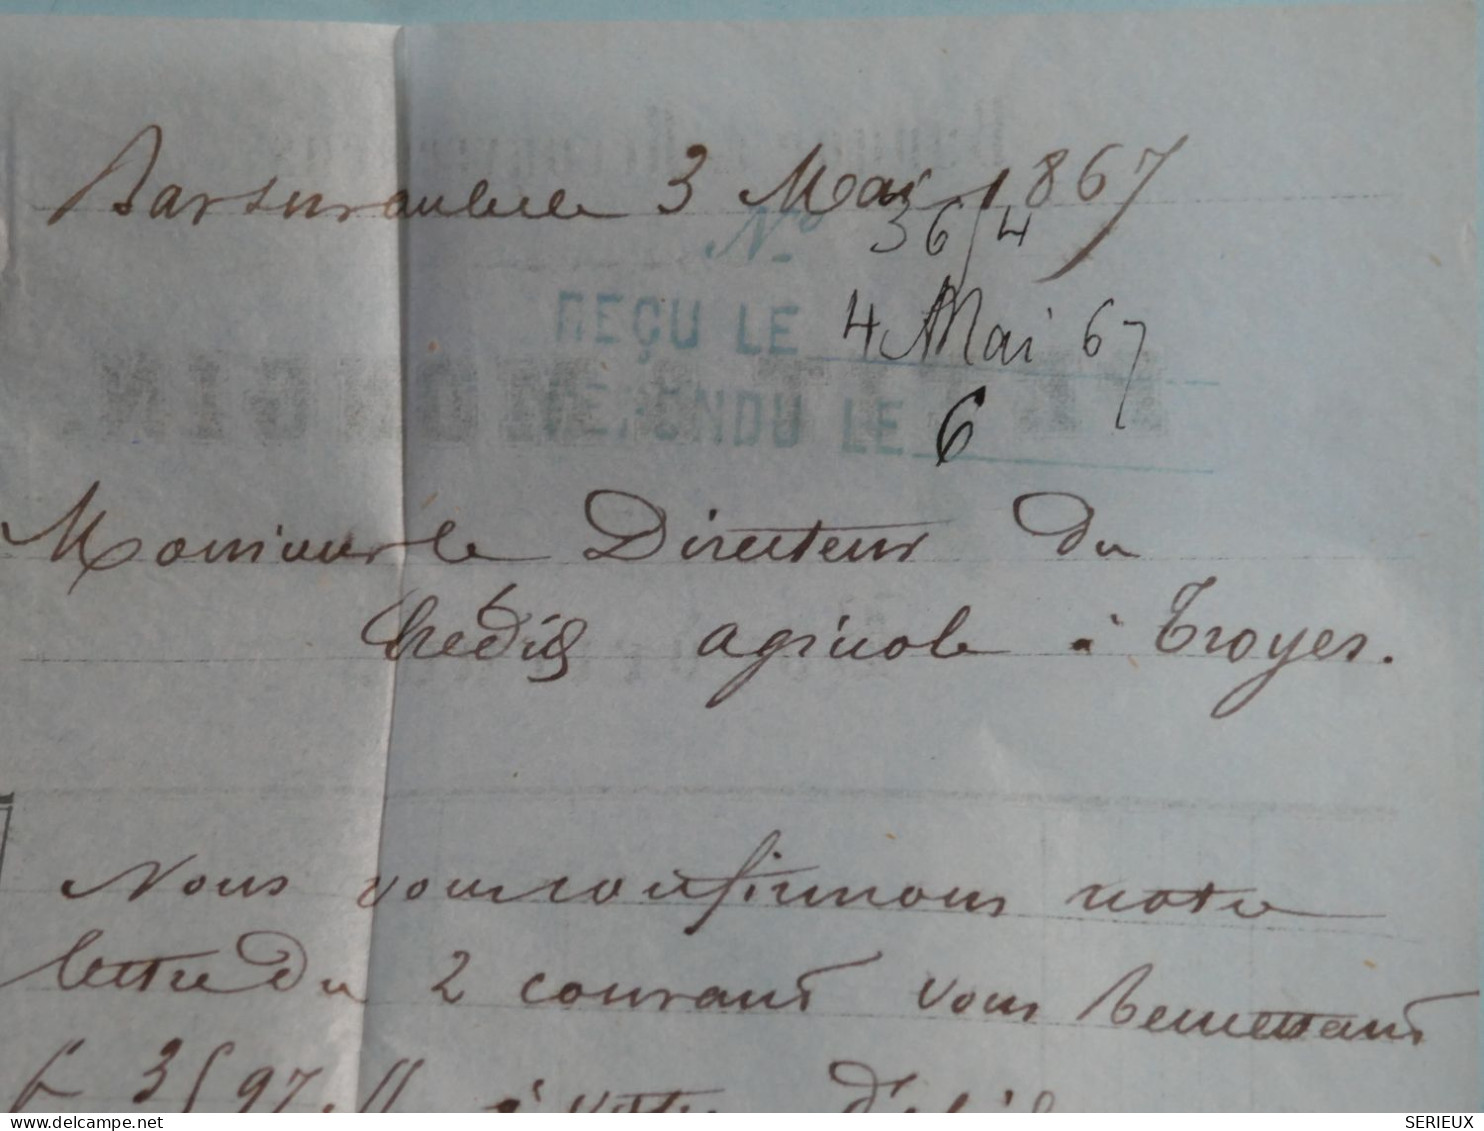 Barsuraube le 3 Mai 1867
N° 3614
REÇU LE 4 Mai 67
RÉPONDU LE 6
Monsieur le Directeur du
Crédit agricole à Troyes.
Nous vous confirmons notre
lettre du 2 courant vous Remettant
f 3597 à votre
SERIEUX
delcampe.net